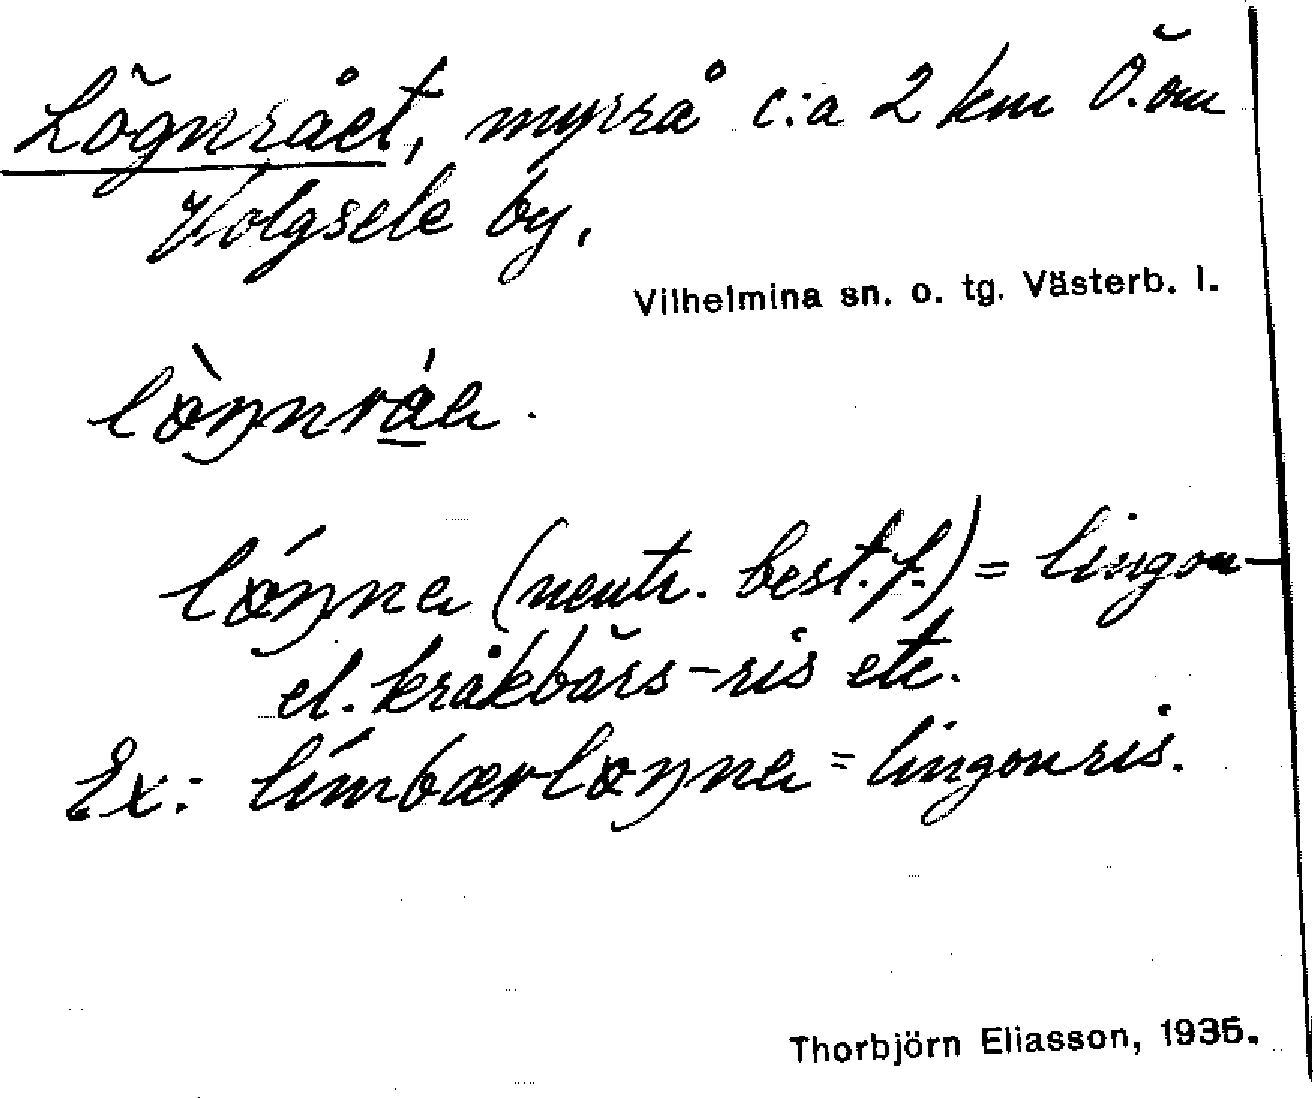 Lögnrået, myrrå c:a 2 km Ö. om
Volgsele by.
Vilhelmina sn. o. tg. Västerb. l.
lö̀ŋnrá̲a.
lǿŋna (neutr. best. f.) = lingon-
el. kråkbärs-ris etc.
Ex: límbærløŋna = lingonris.
Thorbjörn Eliasson, 1935.